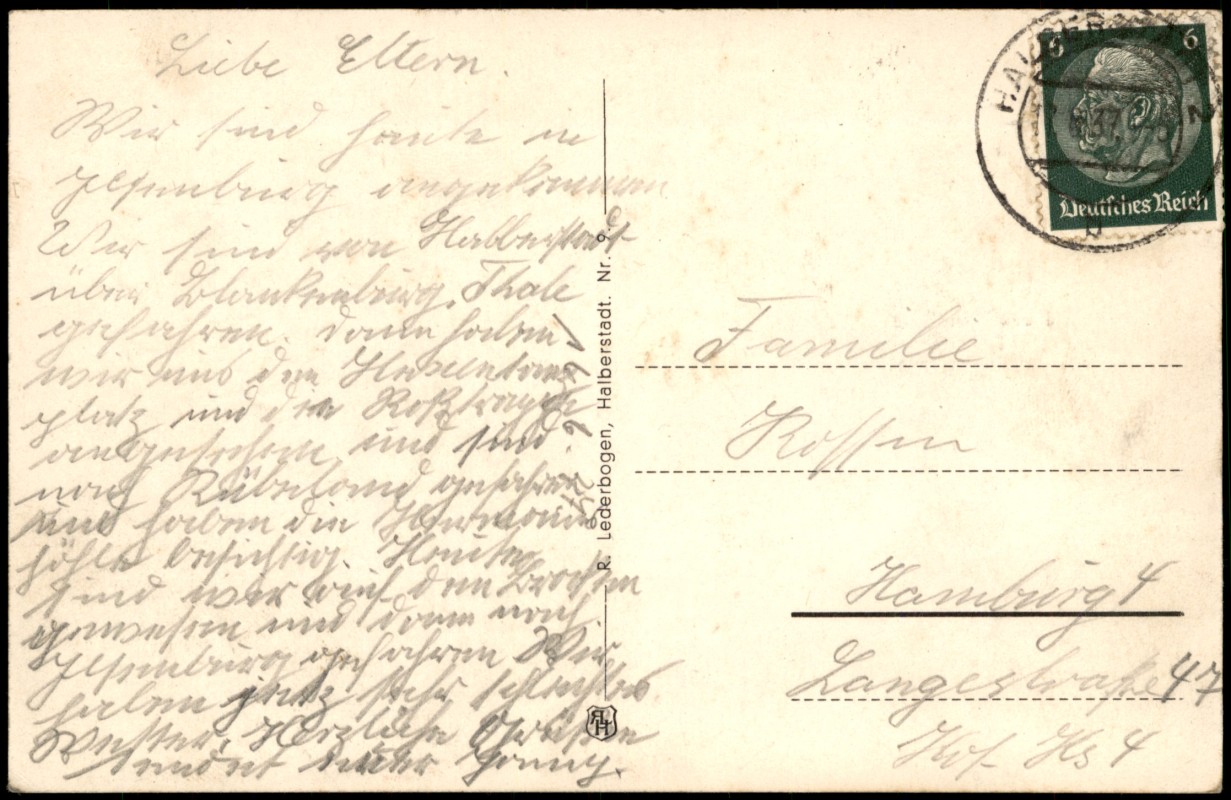 Liebe Eltern.
Wir sind heute in
Ilsenburg angekommen
Wir sind von Halberstadt
über Blankenburg, Thale
gefahren. Dann haben
wir uns den Hexentanz
platz und die Roßtrappe
angesehen und sind
nach Rübeland gefahren
und haben die Hermanns
höhle besichtig. Heute
sind wir auf dem Brocken
gewesen und dann nach
Ilsenburg gefahren Wir
haben jetz sehr schlechtes
Wetter. Herzliche Grüße
sendet euer
R. Lederbogen, Halberstadt. Nr. 9
RLH
HALBERSTADT 2
37
6 6
Deutsches Reich
Familie
Rossen
Hamburg 4
Langestraße 47
Hof. Hs 4